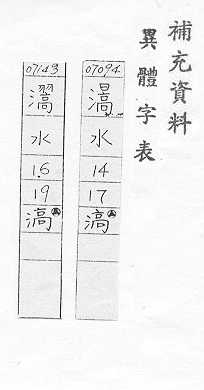 補充資料
異體字表
07094
水
14
17
滈
07143
水
16
19
滈